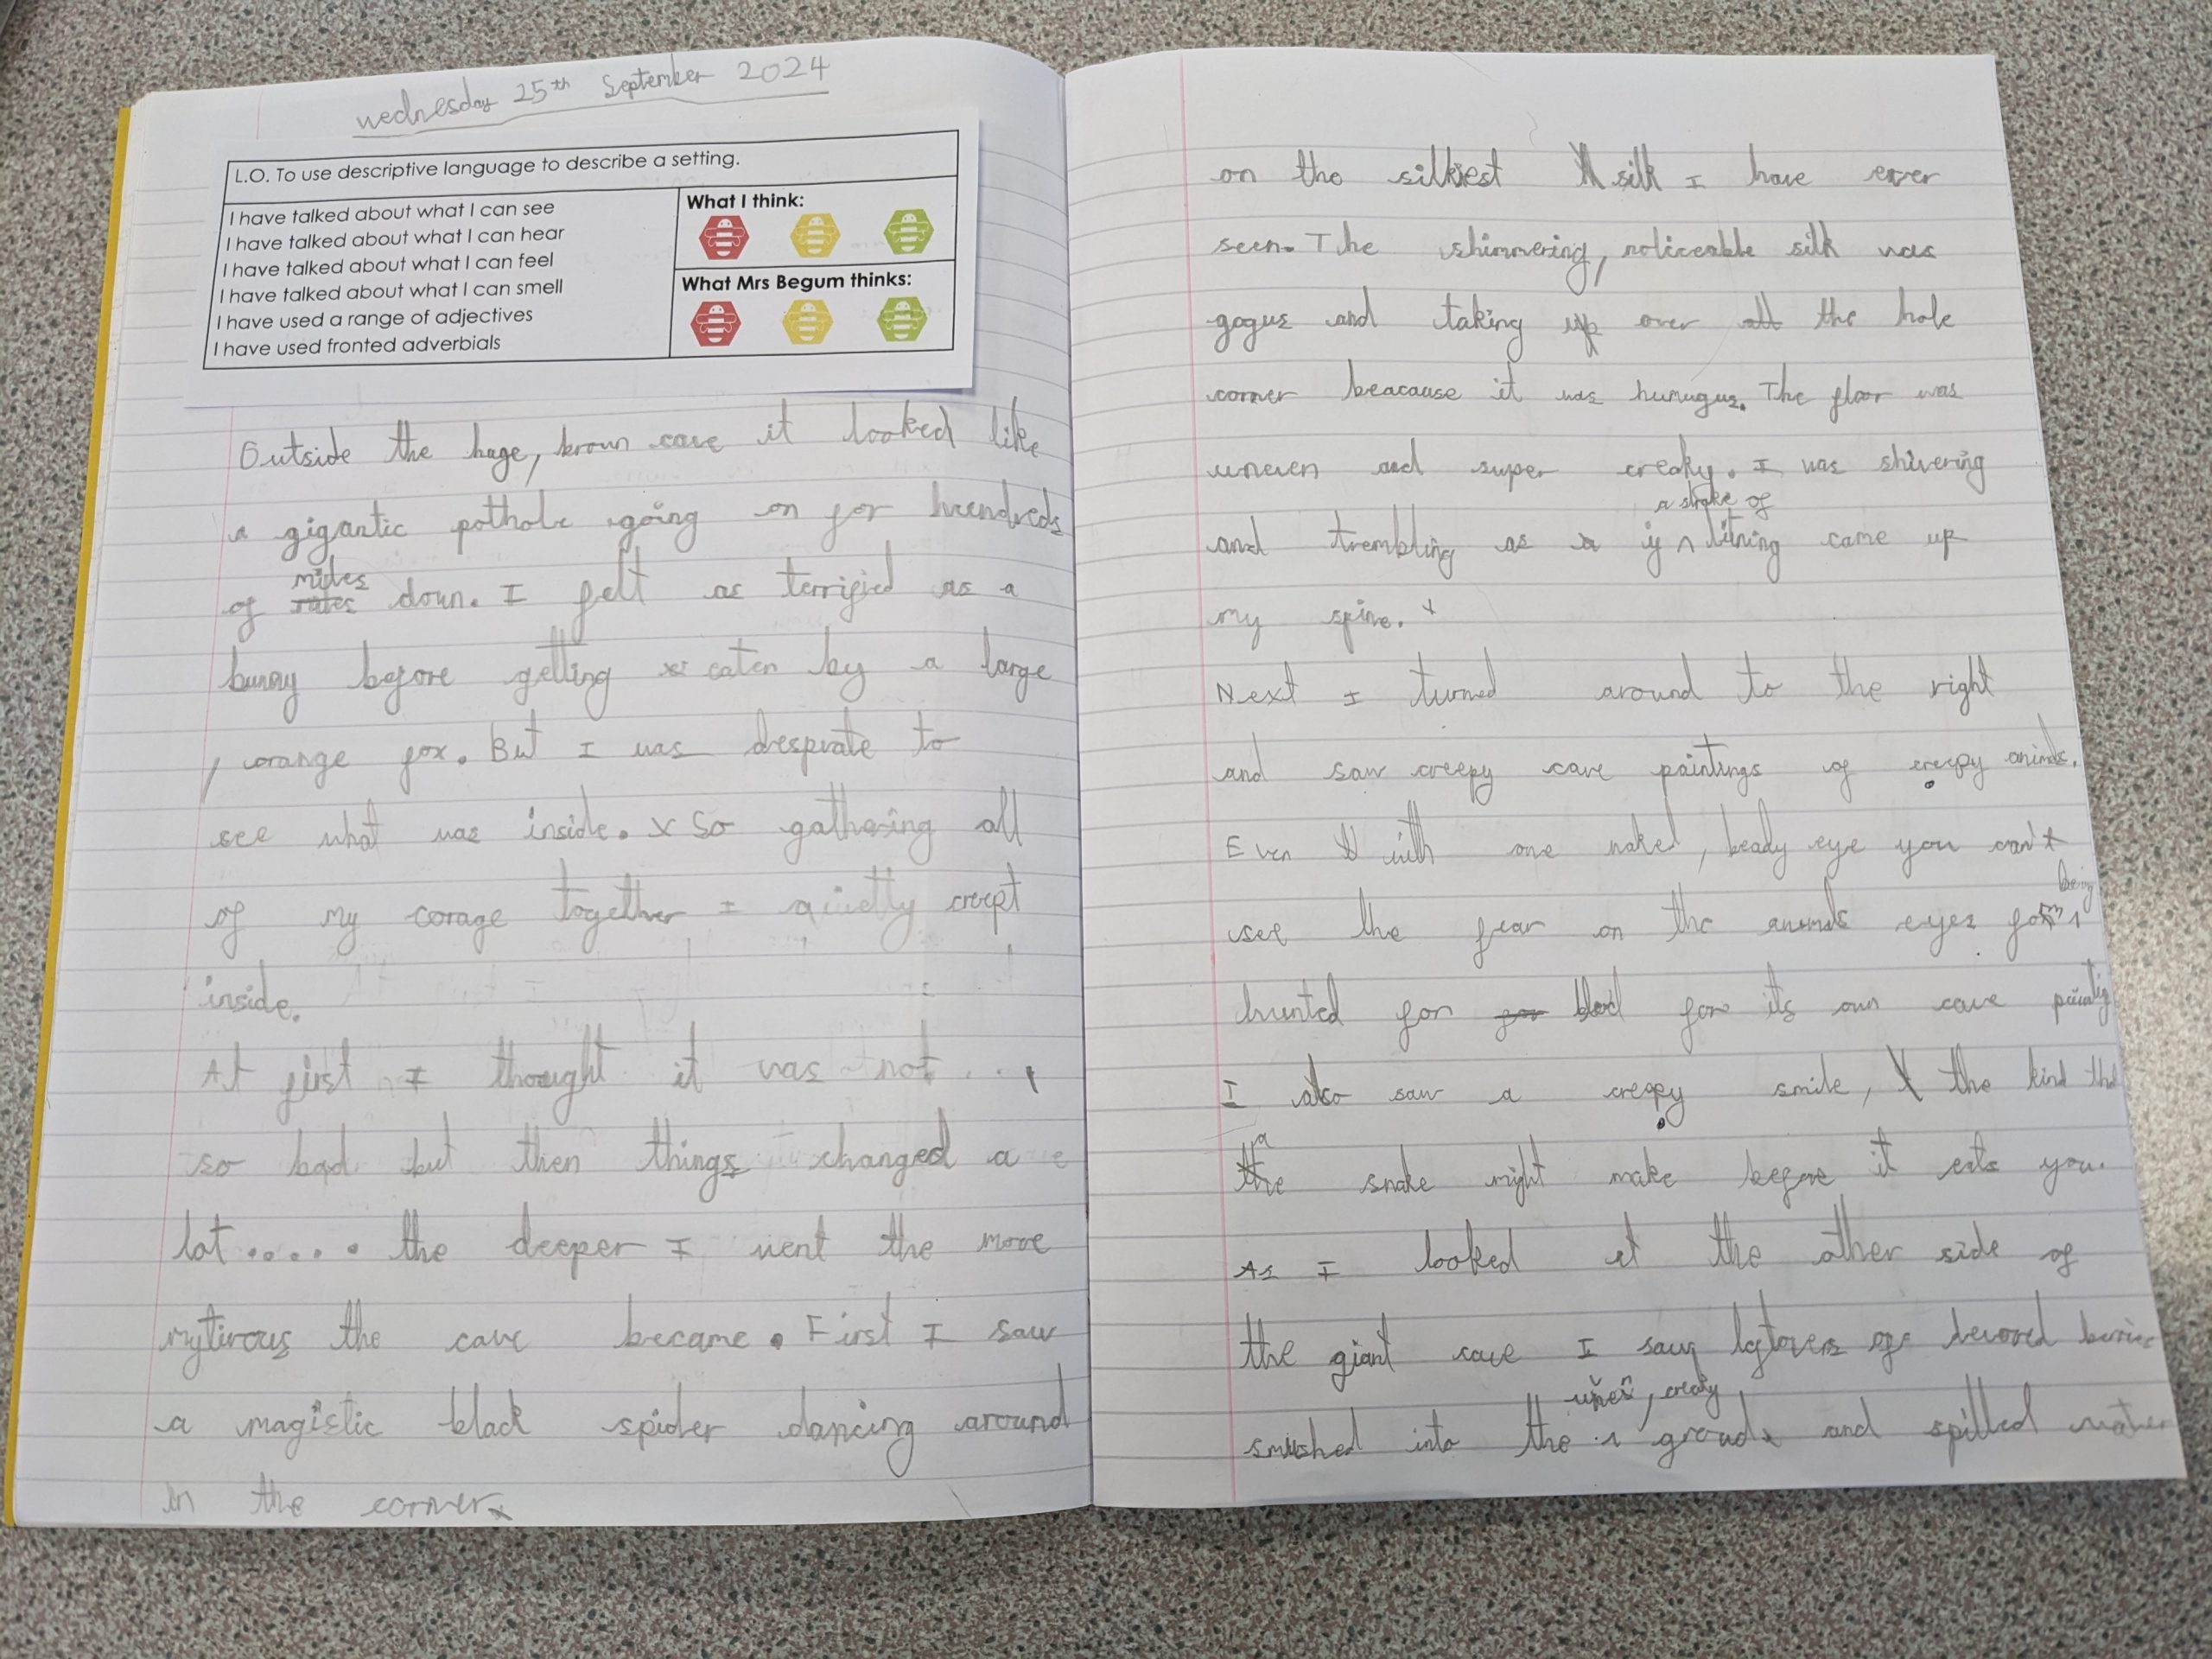 wednesday 25th September 2024
L.O. To use descriptive language to describe a setting.
I have talked about what I can see
I have talked about what I can hear
I have talked about what I can feel
I have talked about what I can smell
I have used a range of adjectives
I have used fronted adverbials
What I think:
What Mrs Begum thinks:
Outside the huge, brown cave it looked like
a gigantic pothole going on for hundreds
of miles down. I felt as terrified as a
bunny before getting eaten by a large
, orange fox. But I was desprate to
see what was inside. So gathering all
of my corage together I quietly creept
inside.
At first I thought it was not
so bad but then things changed a
lot..... the deeper I went the more
mytirous the cave became. First I saw
a magistic black spider dancing around
in the corner
on the silkiest silk I have ever
seen. The shimmering, noticeable silk was
gogus and taking over the hole
corner beacause it was humugus. The floor was
uneven and super creaky. I was shivering
and trembling as if a stroke of litning came up
my spine.
Next I turned around to the right
and saw creepy cave paintings of creepy animals.
Even with one naked, beady eye you can't
see the fear on the animals eyes from being
hunted for blood for its own cave
I also saw a creepy smile, the kind tha
a snake might make before it eats you.
As I looked at the other side of
the giant cave I saw leftovers of devored
smushed into the creaky ground and spilled water